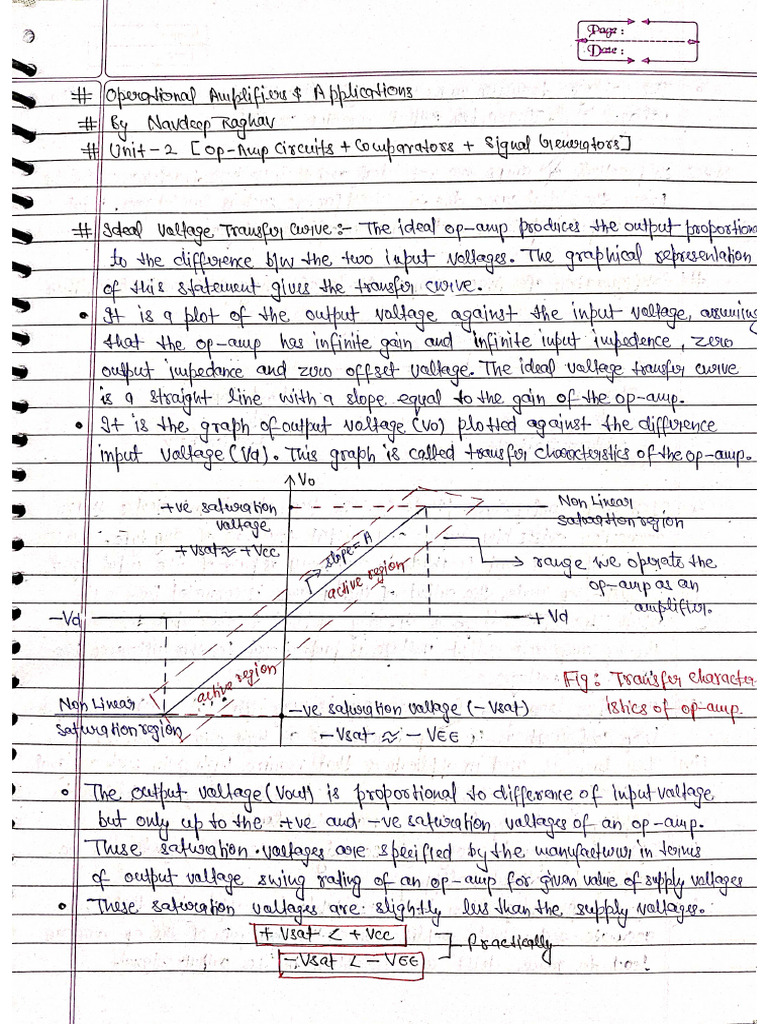 Page:
Date:
# Operational Amplifiers & Applications
# By Navdeep Raghav
# Unit-2 [Op-Amp Circuits + Comparators + Signal Generators]
# Ideal Voltage Transfer Curve:- The ideal op-amp produces the output proportional
to the difference b/w the two input voltages. The graphical representation
of this statement gives the transfer curve.
• It is a plot of the output voltage against the input voltage, assuming
that the op-amp has infinite gain and infinite input impedence, zero
output impedance and zero offset voltage. The ideal voltage transfer curve
is a straight line with a slope equal to the gain of the op-amp.
• It is the graph of output voltage (Vo) plotted against the difference
input voltage (Vd). This graph is called transfer characteristics of the op-amp.
Vo
+ve saturation
voltage
+Vsat ≈ +Vcc
slope = A
active region
Non Linear
saturation region
→ range we operate the
op-amp as an
amplifier.
-Vd
+Vd
active region
Non Linear
saturation region
-ve saturation voltage (-Vsat)
-Vsat ≈ -VEE
Fig: Transfer character-
istics of op-amp.
• The output voltage (Vout) is proportional to difference of input voltage
but only up to the +ve and -ve saturation voltages of an op-amp.
These saturation voltages are specified by the manufacturer in terms
of output voltage swing rating of an op-amp for given value of supply voltages
• These saturation voltages are slightly less than the supply voltages.
+Vsat < +Vcc
-Vsat < -VEE
Practically